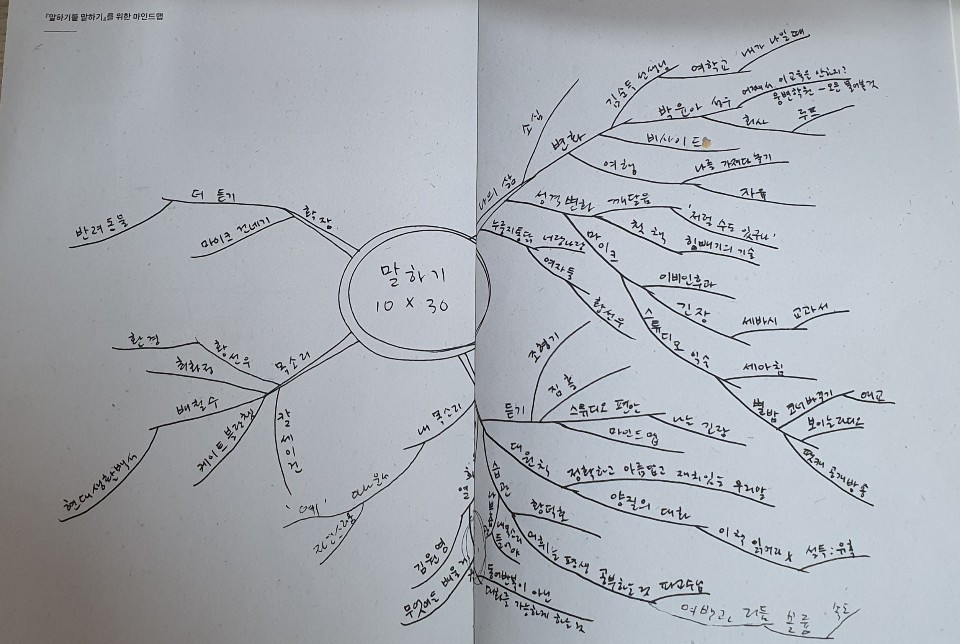 『말하기를 말하기』를 위한 마인드맵
말하기
10 × 30
확장
더 듣기
반려동물
마이크 건네기
목소리
황선우
환경
최화정
배철수
현대생활백서
케이트 블란쳇
칼 세이건
내 목소리
자연스러움
'예'
김원영
무엇이든 배울 게
나의 삶
소심
변화
김순득 선생님
여학교
내가 나일 때
박윤아 성우
어째서 이 교육은 안하지?
웅변학원 - 오른
회사
루프
비사이드
여행
나를 가져다 놓기
자유
성격 변화
깨달음
'저럴 수도 있구나'
첫 책
힘빼기의 기술
마이크
이비인후과
긴장
세바시
교과서
스튜디오 익숙
세아침
별밤
코너 바꾸기
애교
보이는 라디오
펫캐 공개방송
누룽지통닭
너랑나랑
여자들
황선우
듣기
조형기
침묵
스튜디오 편안
나는 긴장
마인드맵
대원칙
정확하고 아름답고 재치있는 우리말
양질의 대화
이 책 읽거라 x
설득 : 유혹
습관
황덕호
내 목소리 들어야
어휘는 평생 공부하는 것
따교수님
여백, 리듬
속도
동어반복이 아닌
대화를 가능하게 하는 것